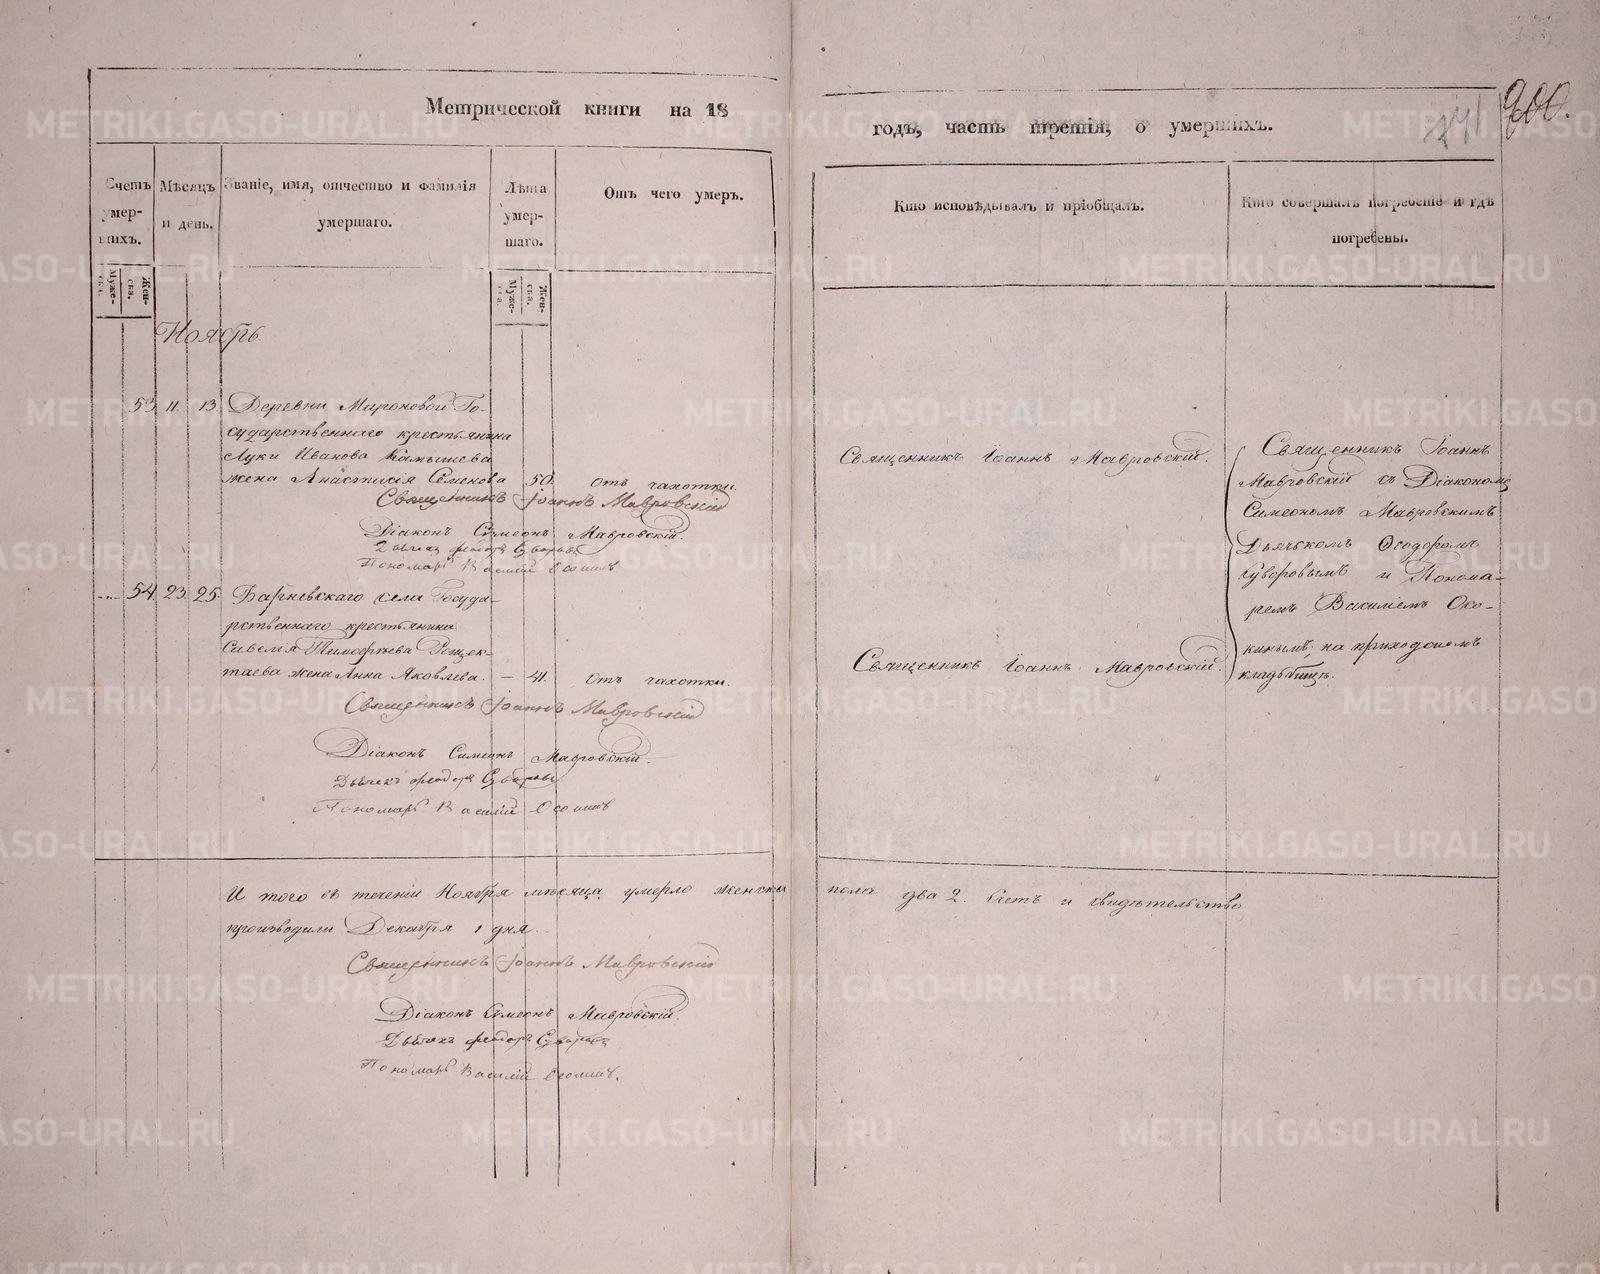 900.
Метрической книги на 18
годъ, часть третія, о умершихъ.
Счетъ умер-шихъ.
Муже-ска.
Жен-ска.
Мѣсяцъ и день.
Званіе, имя, отчество и фамилія умершаго.
Лѣта умер-шаго.
Муже-ска.
Жен-ска.
Отъ чего умеръ.
Кто исповѣдывалъ и пріобщалъ.
Кто совершалъ погребеніе и гдѣ погребены.
Ноябрь.
53 11. 13. Деревни Мироновой Го-
сударственнаго крестьянина
Луки Иванова Камышева
жена Анастасія Семенова 50. отъ чахотки.
Священникъ Іоаннъ Мавровскій.
Священникъ Іоаннъ Мавровскій
Діаконъ Симеонъ Мавровскій.
Дьячекъ Феодоръ Суворовъ
Пономарь Василій
54. 23. 25. Барневскаго села Госуда-
рственнаго крестьянина
Савелья Тимофѣева
жена Анна Яковлева. — 41. Отъ чахотки.
Священникъ Іоаннъ Мавровскій.
Священникъ Іоаннъ Мавровскій
Діаконъ Симеонъ Мавровскій.
Дьячекъ Феодоръ Суворовъ
Пономарь Василій
Священникъ Іоаннъ
Мавровскій съ Діакономъ
Симеономъ Мавровскимъ
Дьячкомъ Ѳеодоромъ
Суворовымъ и Понома-
ремъ Василіемъ Око-
кинымъ; на приходскомъ
кладбищѣ.
И того въ теченіи Ноября мѣсяца умерло женска пола два 2. Счетъ и свидѣтельство
производили Декабря 1 дня.
Священникъ Іоаннъ Мавровскій
Діаконъ Симеонъ Мавровскій.
Дьячекъ Феодоръ Суворовъ
Пономарь Василій
METRIKI.GASO-URAL.RU